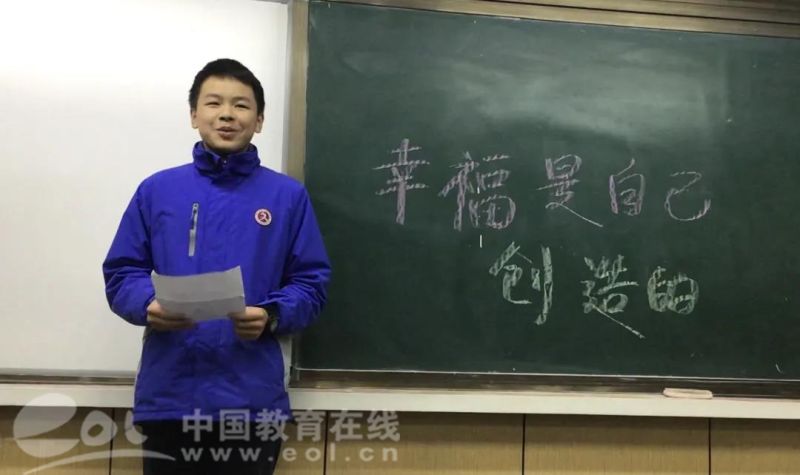 幸福是自己
创造的
eol 中国教育在线
www.eol.cn